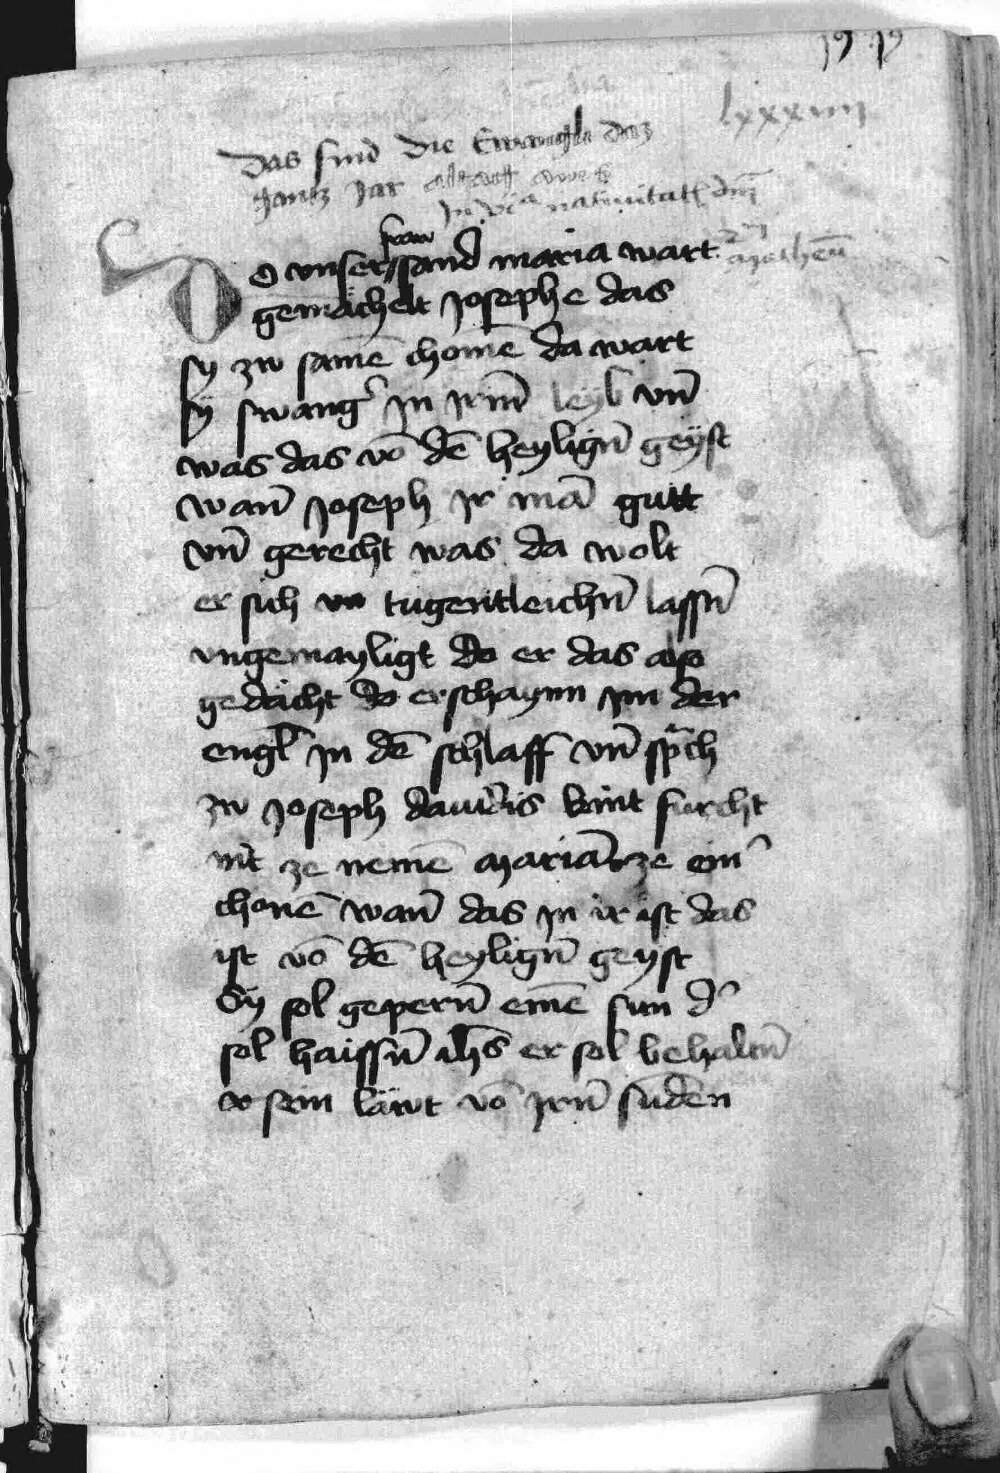 19 19
lxxxiiii
Das sind die Ewangeli daz
gantz Jar
In vigilia natiuitatis dni
fraw
DO vnser sand maria wart
Matheu
gemächelt Josephe das
sy zw samē chomē da wart
sy swangˀ in irm̄ leyb vn̄
was das vō dē heylign̄ geyst
wan̄ Joseph ir mā gutt
vn̄ gerecht was da wolt
er sich tugentleichn̄ lassn̄
vngemayligt do er das also
gedächt do erschaynn im der
engl̄ in dē schlaff vn̄ sprach
zw Joseph dauidis kint fürcht
nit ze nemē Mariā ze einˀ
chonē wan̄ das in ir ist das
ist vō dē heylign̄ geyst
Sy sol gepern̄ eine sun dˀ
sol haissn̄ ihs er sol behaltn̄
sein läwt vō irn̄ sündēn